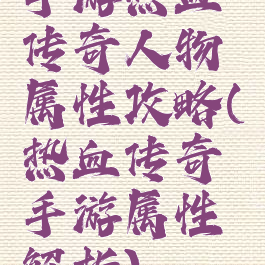 手游热血
传奇人物
属性攻略(
热血传奇
手游属性
解析)